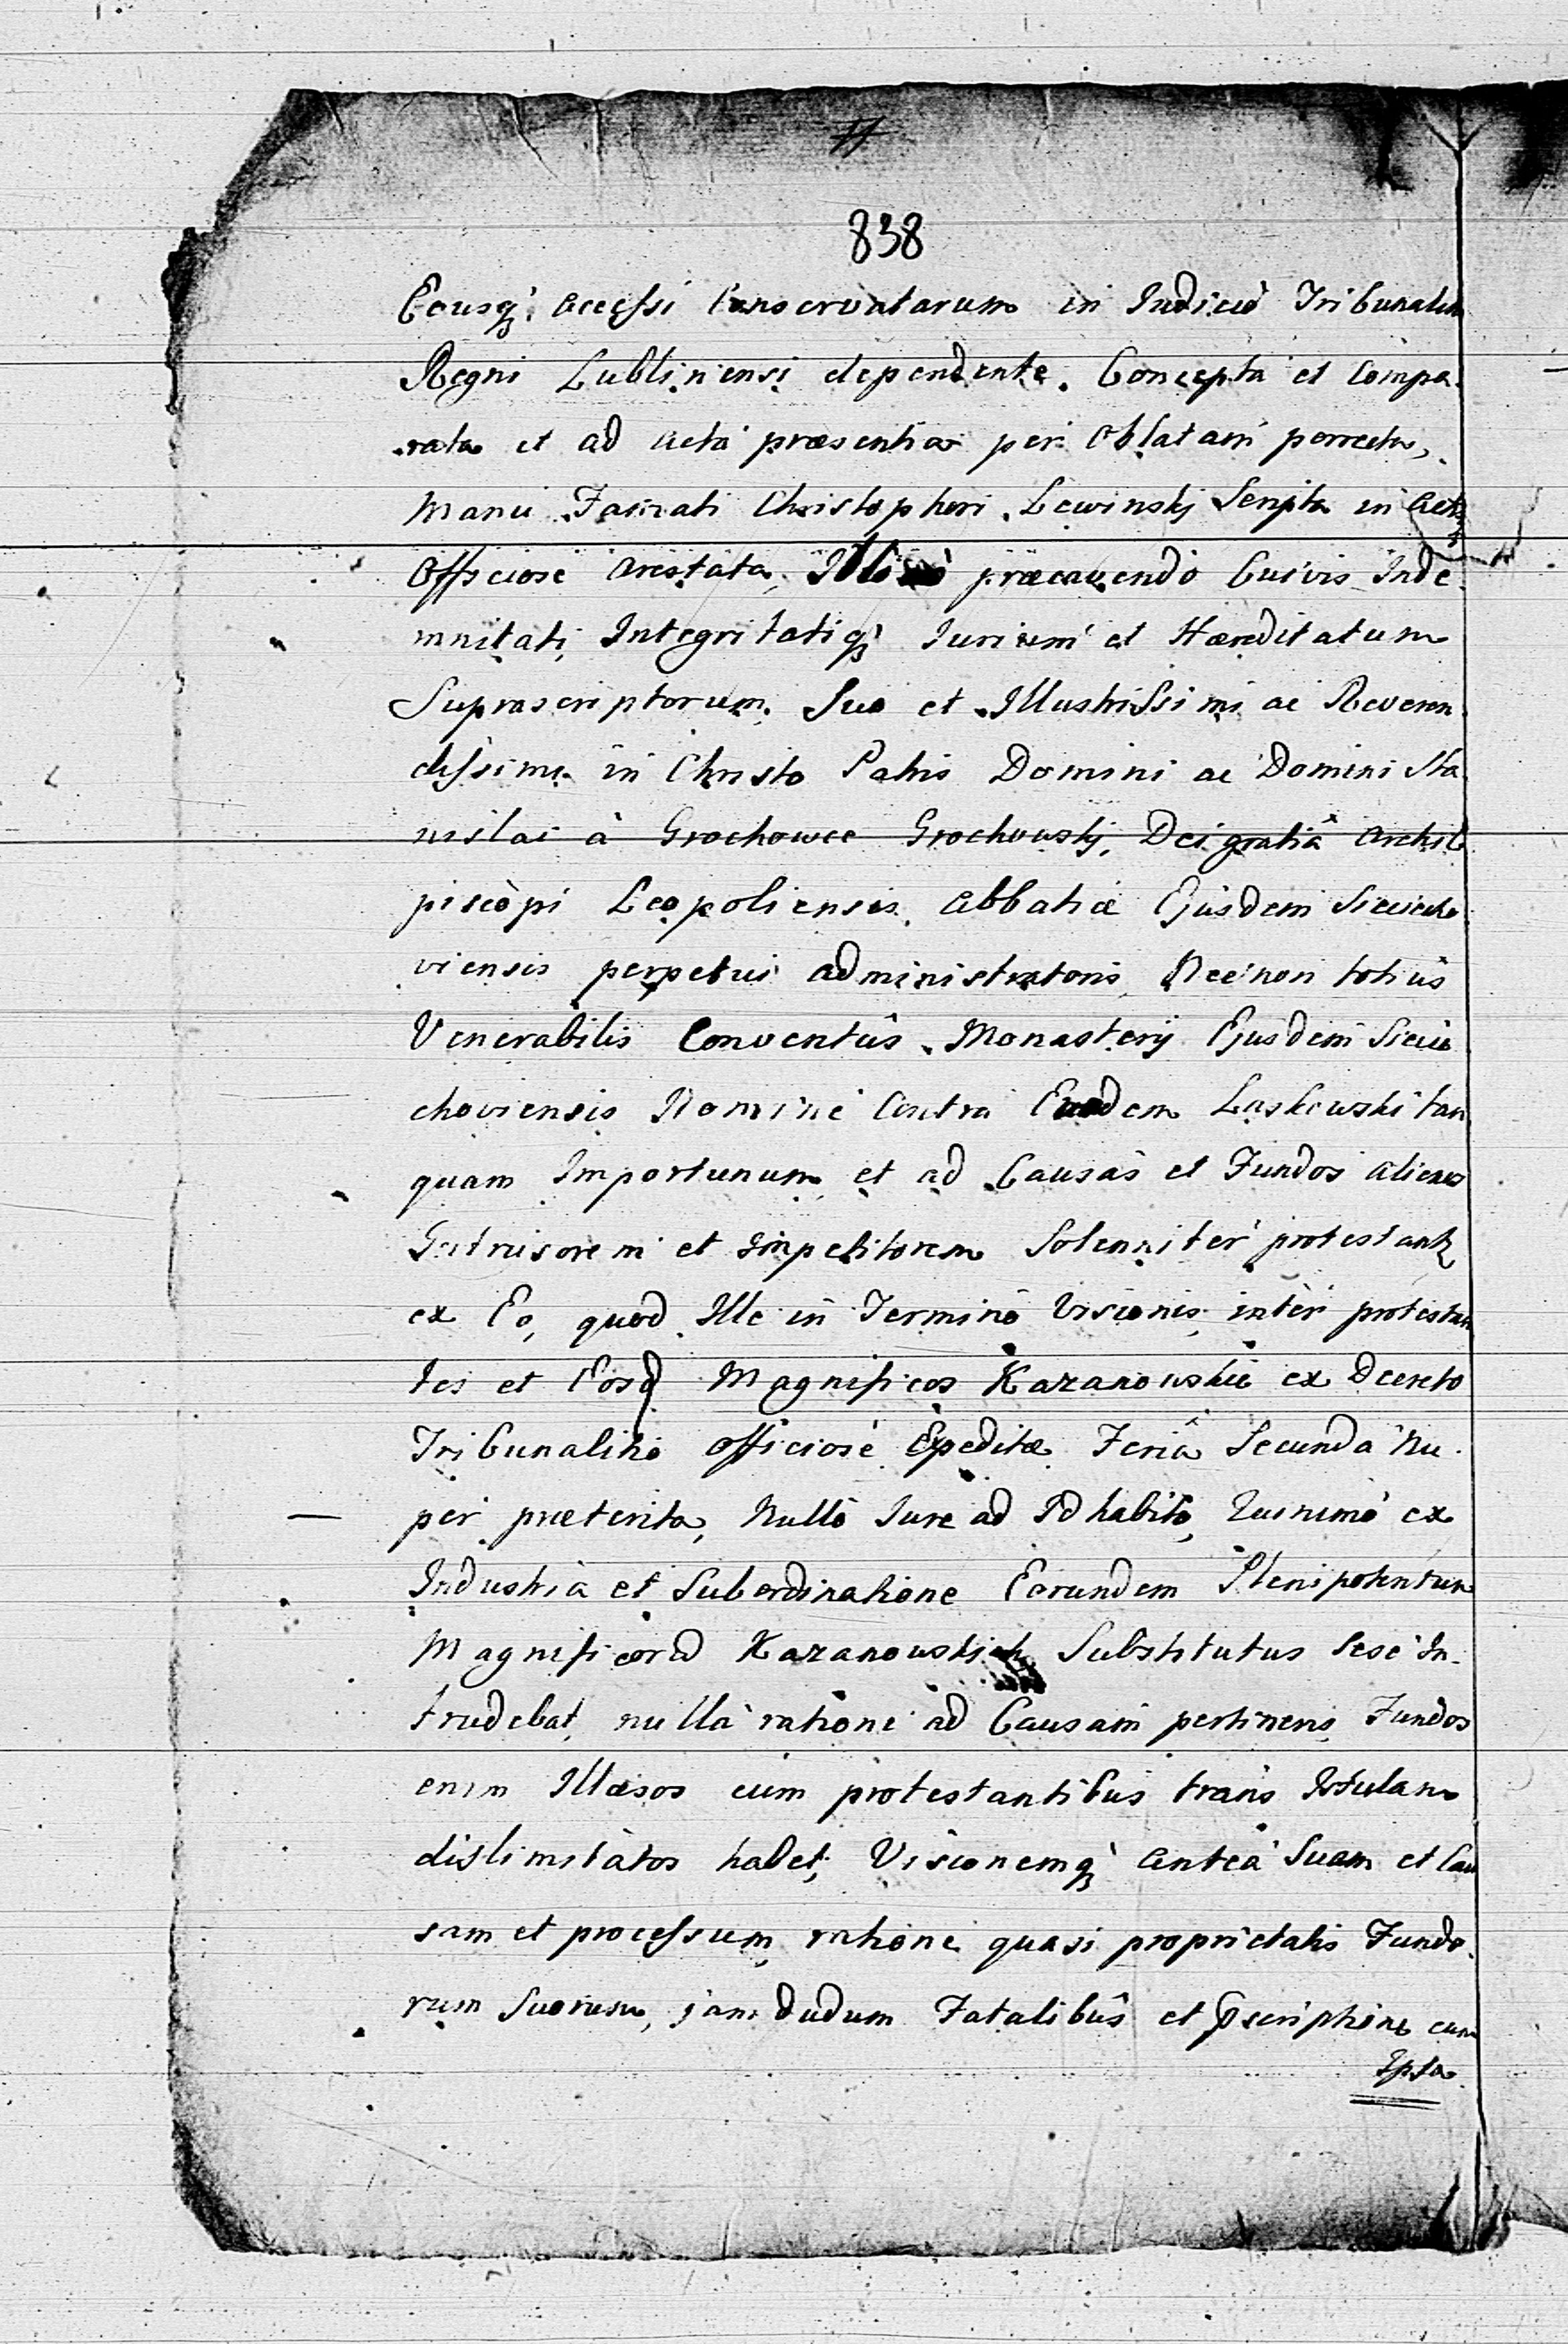 838
Eousq; accessi Conservatarum in Iudicio Tribunalis
Regni Lublinensi dependente. Concepta et Compa-
rata et ad Acta præsentia per Oblatam porrecta,
Manu Famati Christopheri Lewinskj Scripta in Actis
Officiose arestata, præcavendo Cuivis Inde-
mnitati, Integritatiq; Iurium et Hæreditatum
Suprascriptorum. Suo et Illustrissimi ac Reveren-
dissimi in Christo Patris Domini ac Domini Sta
nislai à Grochowce Grochowskj, Dei gratiâ Archie
piscopi Leopoliensis, Abbatiæ Ejusdem Sieciecho
viensis perpetui administratoris, Necnon totius
Venerabilis Conventûs Monasterij Ejusdem Siecie
choviensis Nomine Contra Eundem Laskowski tan
quam Importunum, et ad Causas et Fundos alienos
Intrusorem et Impetitorem Solenniter protestantur
ex Eo, quod Ille in Termino Visionis, inter protestan
tes et Eosd Magnificos Kazanowskie ex Decreto
Tribunalitio officiosè Expeditæ Feriâ Secunda Nu-
per præterita, Nullô Iure ad Id habitô, Quinimò ex
Industria et Subordinatione Eorundem Plenipotentum
Magnificord Kazanowskich Substitutus sese In-
trudebat, nullâ ratione ad Causam pertinens, Fundos
enim Illæsos cum protestantibus trans Istulam
dislimitatos habet, Visionemq; Antea Suam et Cau
sam et processum ratione quasi proprietatis Fundo-
rum Suorum, jam dudum Fatalibus et pscriptione cum
Ipsa